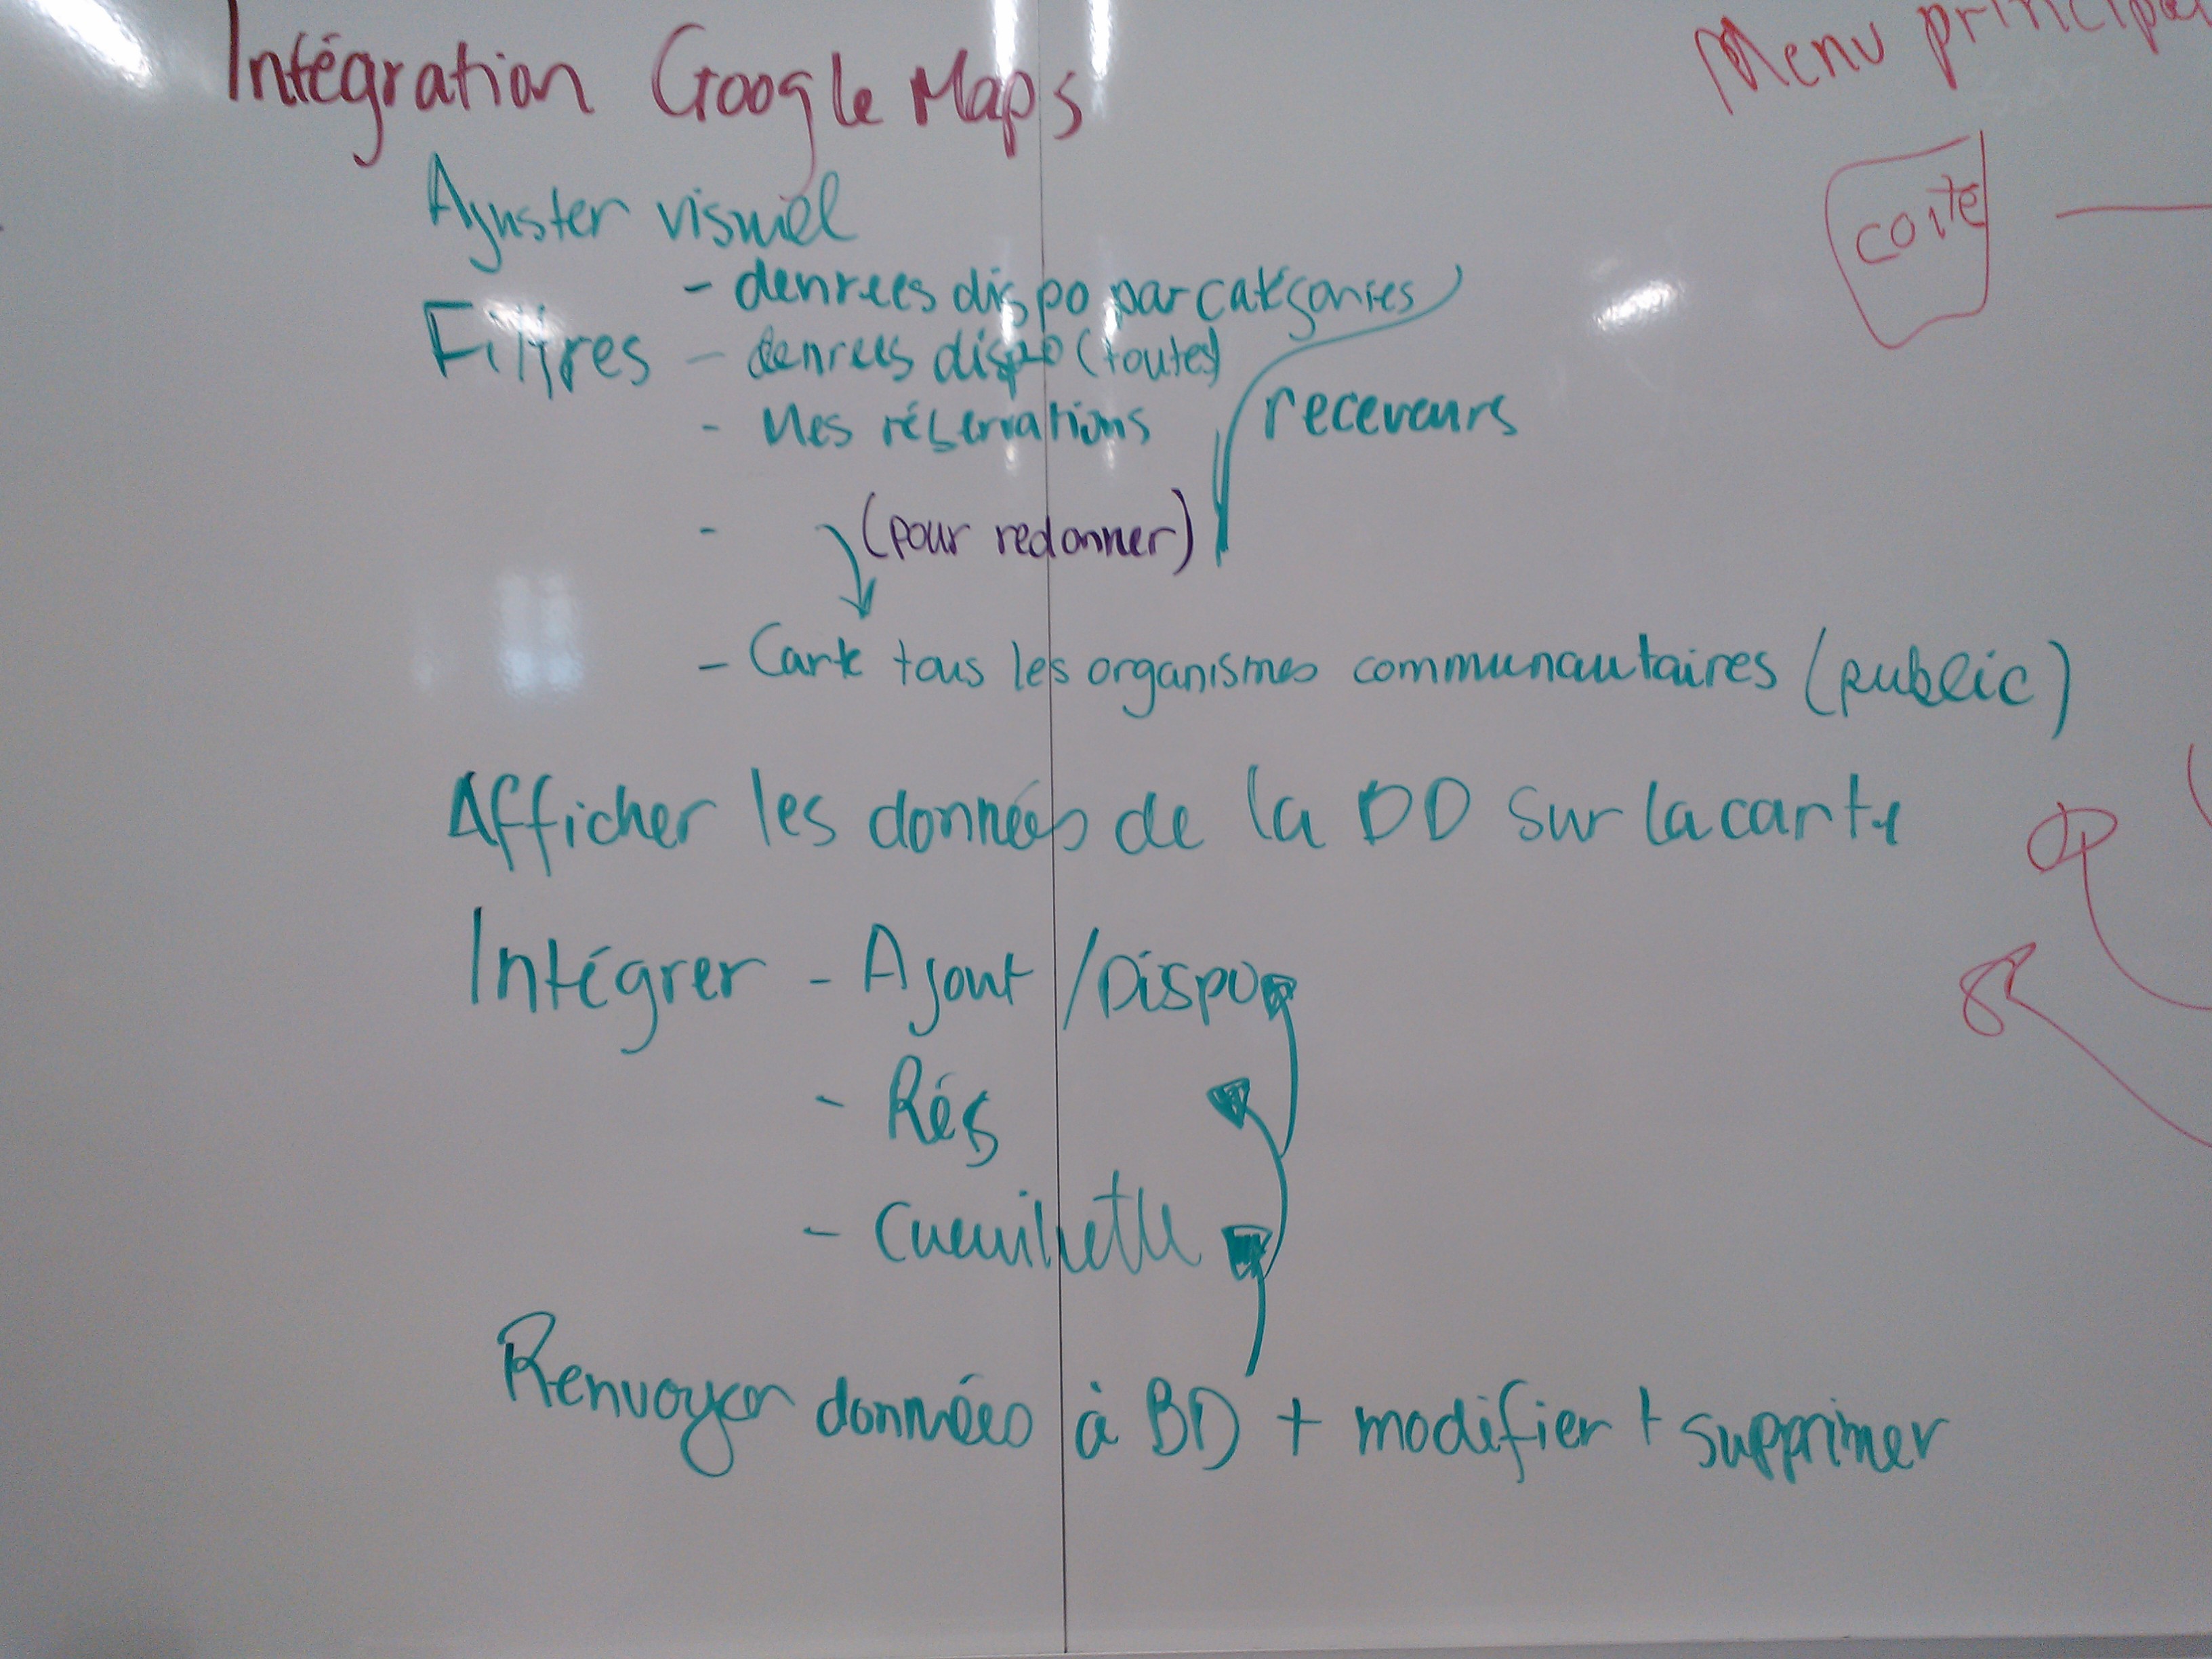 Intégration Google Maps
Menu principal
Ajuster visuel
- denrees dispo par catégories
Filtres - denrees dispo (toutes)
- Mes réservations
receveurs
- (pour redonner)
- Carte tous les organismes communautaires (public)
Afficher les données de la DD sur la carte
Intégrer - Ajout / Dispo
- Rés
- Cueuillette
Renvoyer données à BD + modifier + supprimer